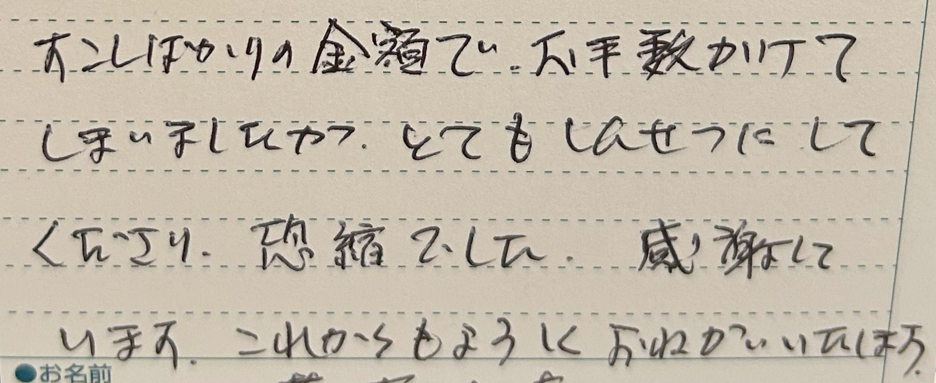 すこしばかりの金額で、お手数かけて
しまいましたが、とてもしんせつにして
くださり、恐縮でした。感謝して
います。これからもよろしくおねがいいたします。
●お名前